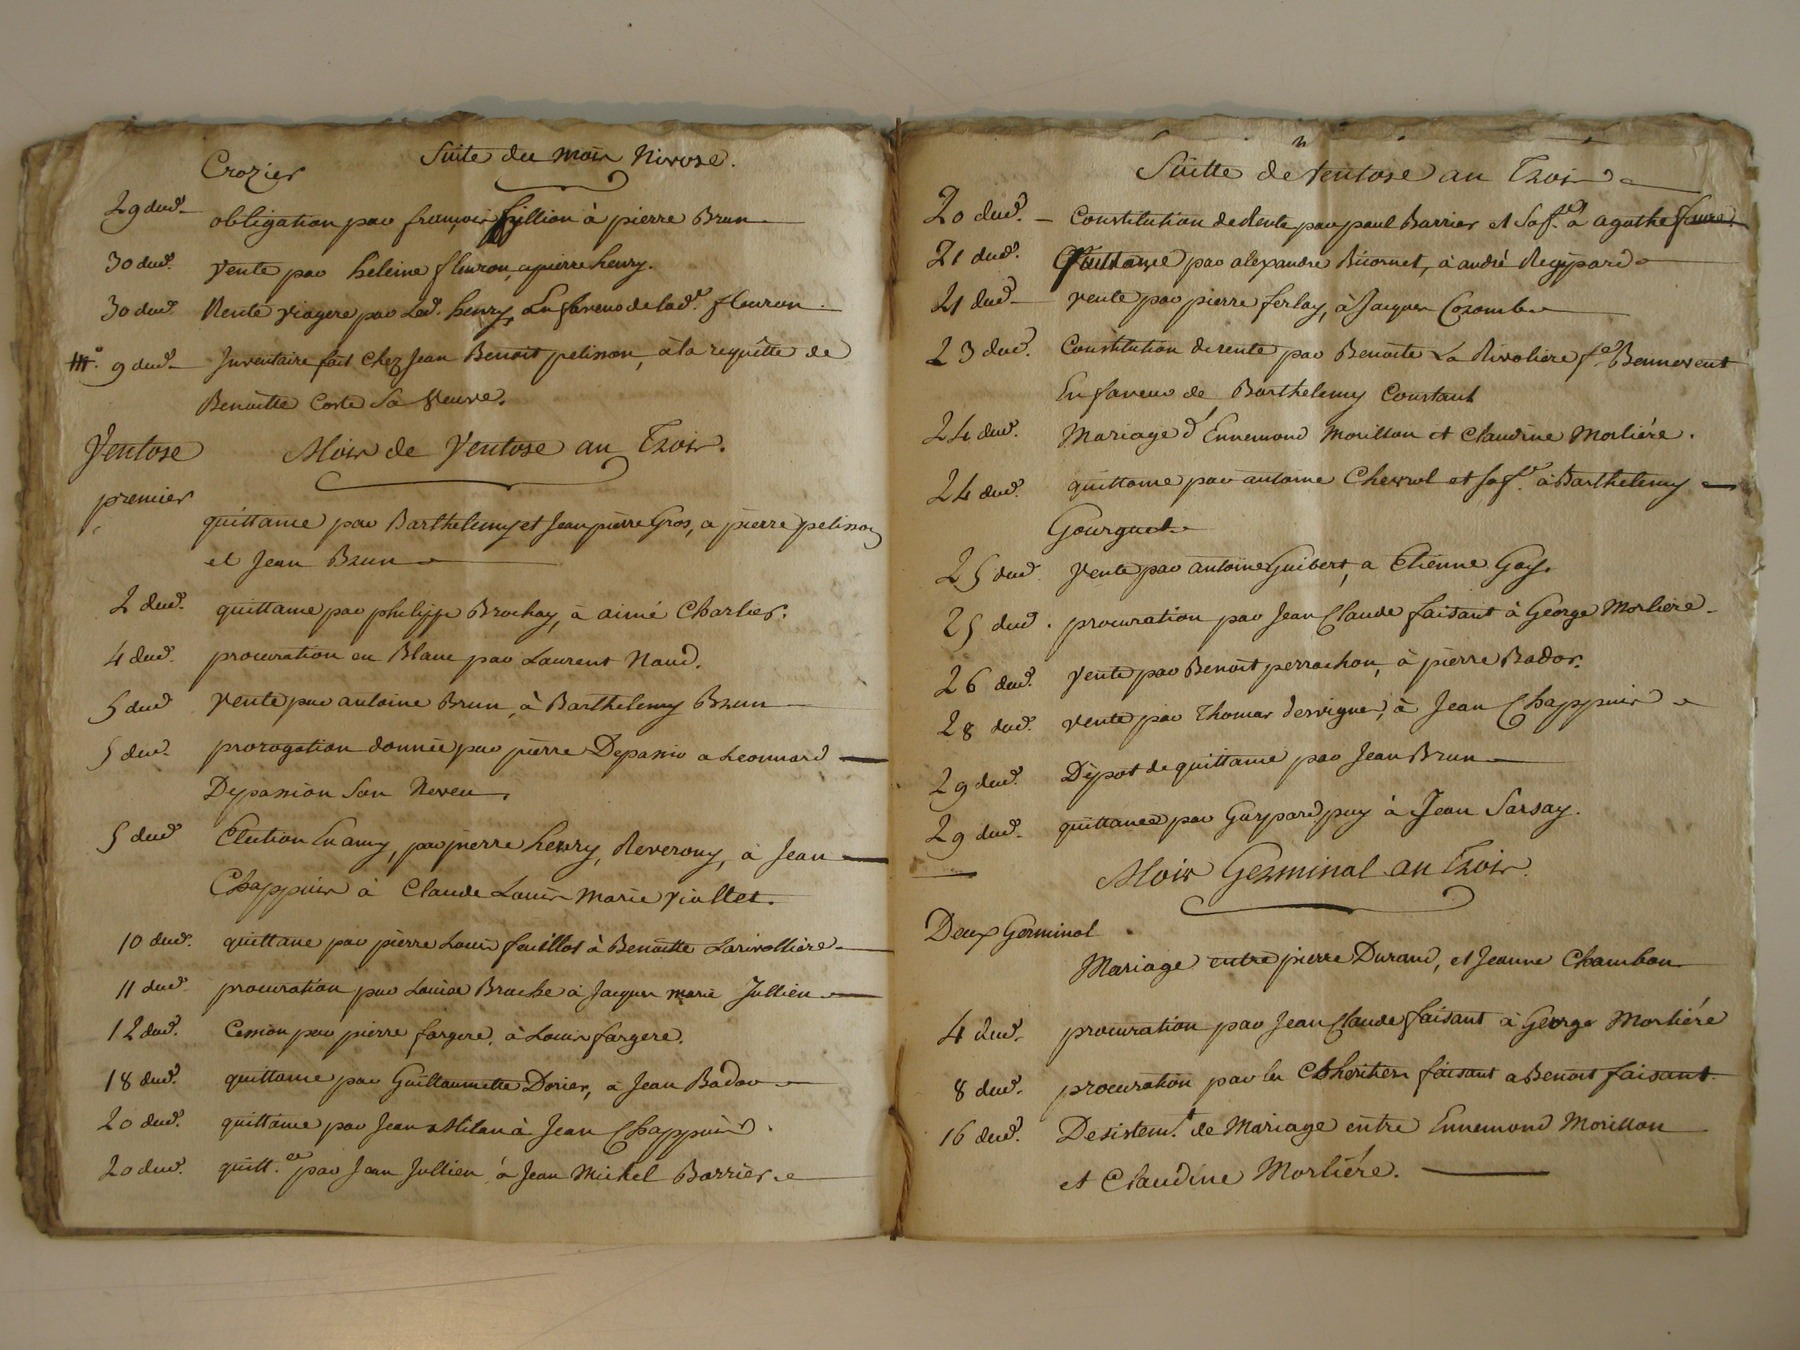 Crozier
Suite du mois Nivose.
29 dud. obligation par françois fillion à pierre Brun
30 dud. Vente par heleine fleuron, a pierre henry.
30 dud. Rente viagere par Led. henry, En faveur de lad.e fleuron.
9 dud. Inventaire fait chez Jean Benoit pelisson, à la requêtte de
Benoitte Coste Sa Veuve.
Ventose Mois de Ventose an Trois.
premier
quittance par Barthelemy et Jean pierre Gros, a pierre pelisson
et Jean Brun
2 dud. quittance par philippe Brochay, à aimé Charlier.
4 dud. procuration en Blanc par Laurent Naud.
5 dud vente par antoine Brun, à Barthelemy Brun
5 dud. prorogation donnée par pierre Depassio a Leonnard
Depassion Son Neveu.
5 dud Election En amy, par pierre henry, Reverony, à Jean
Chappuis à Claude Louis Marie viallet.
10 dud. quittance par pierre Louis feuillot à Benoitte Larivolliere
11 dud. procuration par Louise Brache à Jacques marie Jullien
12 dud. Cession par pierre fargere, à Louis fargere.
18 dud. quittance par Guillaumette Dorier, a Jean Bador
20 dud. quittance par Jean Milan à Jean Chappuis.
20 dud. quitt.ce par Jean Jullien, à Jean Michel Barrier.
Suitte de Ventose an Trois
20 dud. Constitution de Rente par paul Barrier et Sa f.e à agathe faure.
21 dud. Quittance par alexandre Bicornet, à andré
21 dud vente par pierre ferlay, à Jacques Coromb
23 dud. Constitution de rente par Benoite La Rivoliere f.e Bennevent
En faveur de Barthelemy Constant
24 dud. Mariage d'Ennemond Morillon et Claudine Morliére.
24 dud. quittance par antoine et sa f.e à Barthelemy
Gourguet
25 dud. vente par antoine Guibert, a Etienne Gay.
25 dud. procuration par Jean Claude faisant à George Morliere
26 dud. vente par Benoit perrachon, à pierre Bador.
28 dud. vente par Thomas desvignes, à Jean Chappuis
29 dud. Dépot de quittance par Jean Brun
29 dud. quittance par Gaspard puy à Jean Sarsay.
Mois Germinal an Trois.
Deux Germinal
Mariage entre pierre Durand, et Jeanne Chambon
4 dud. procuration par Jean Claude faisant à George Morliére
8 dud. procuration par les Cohéritiers faisant a Benoit faisant
16 dud. Desistem.t de Mariage entre Ennemond Morillon
et Claudine Morliére.